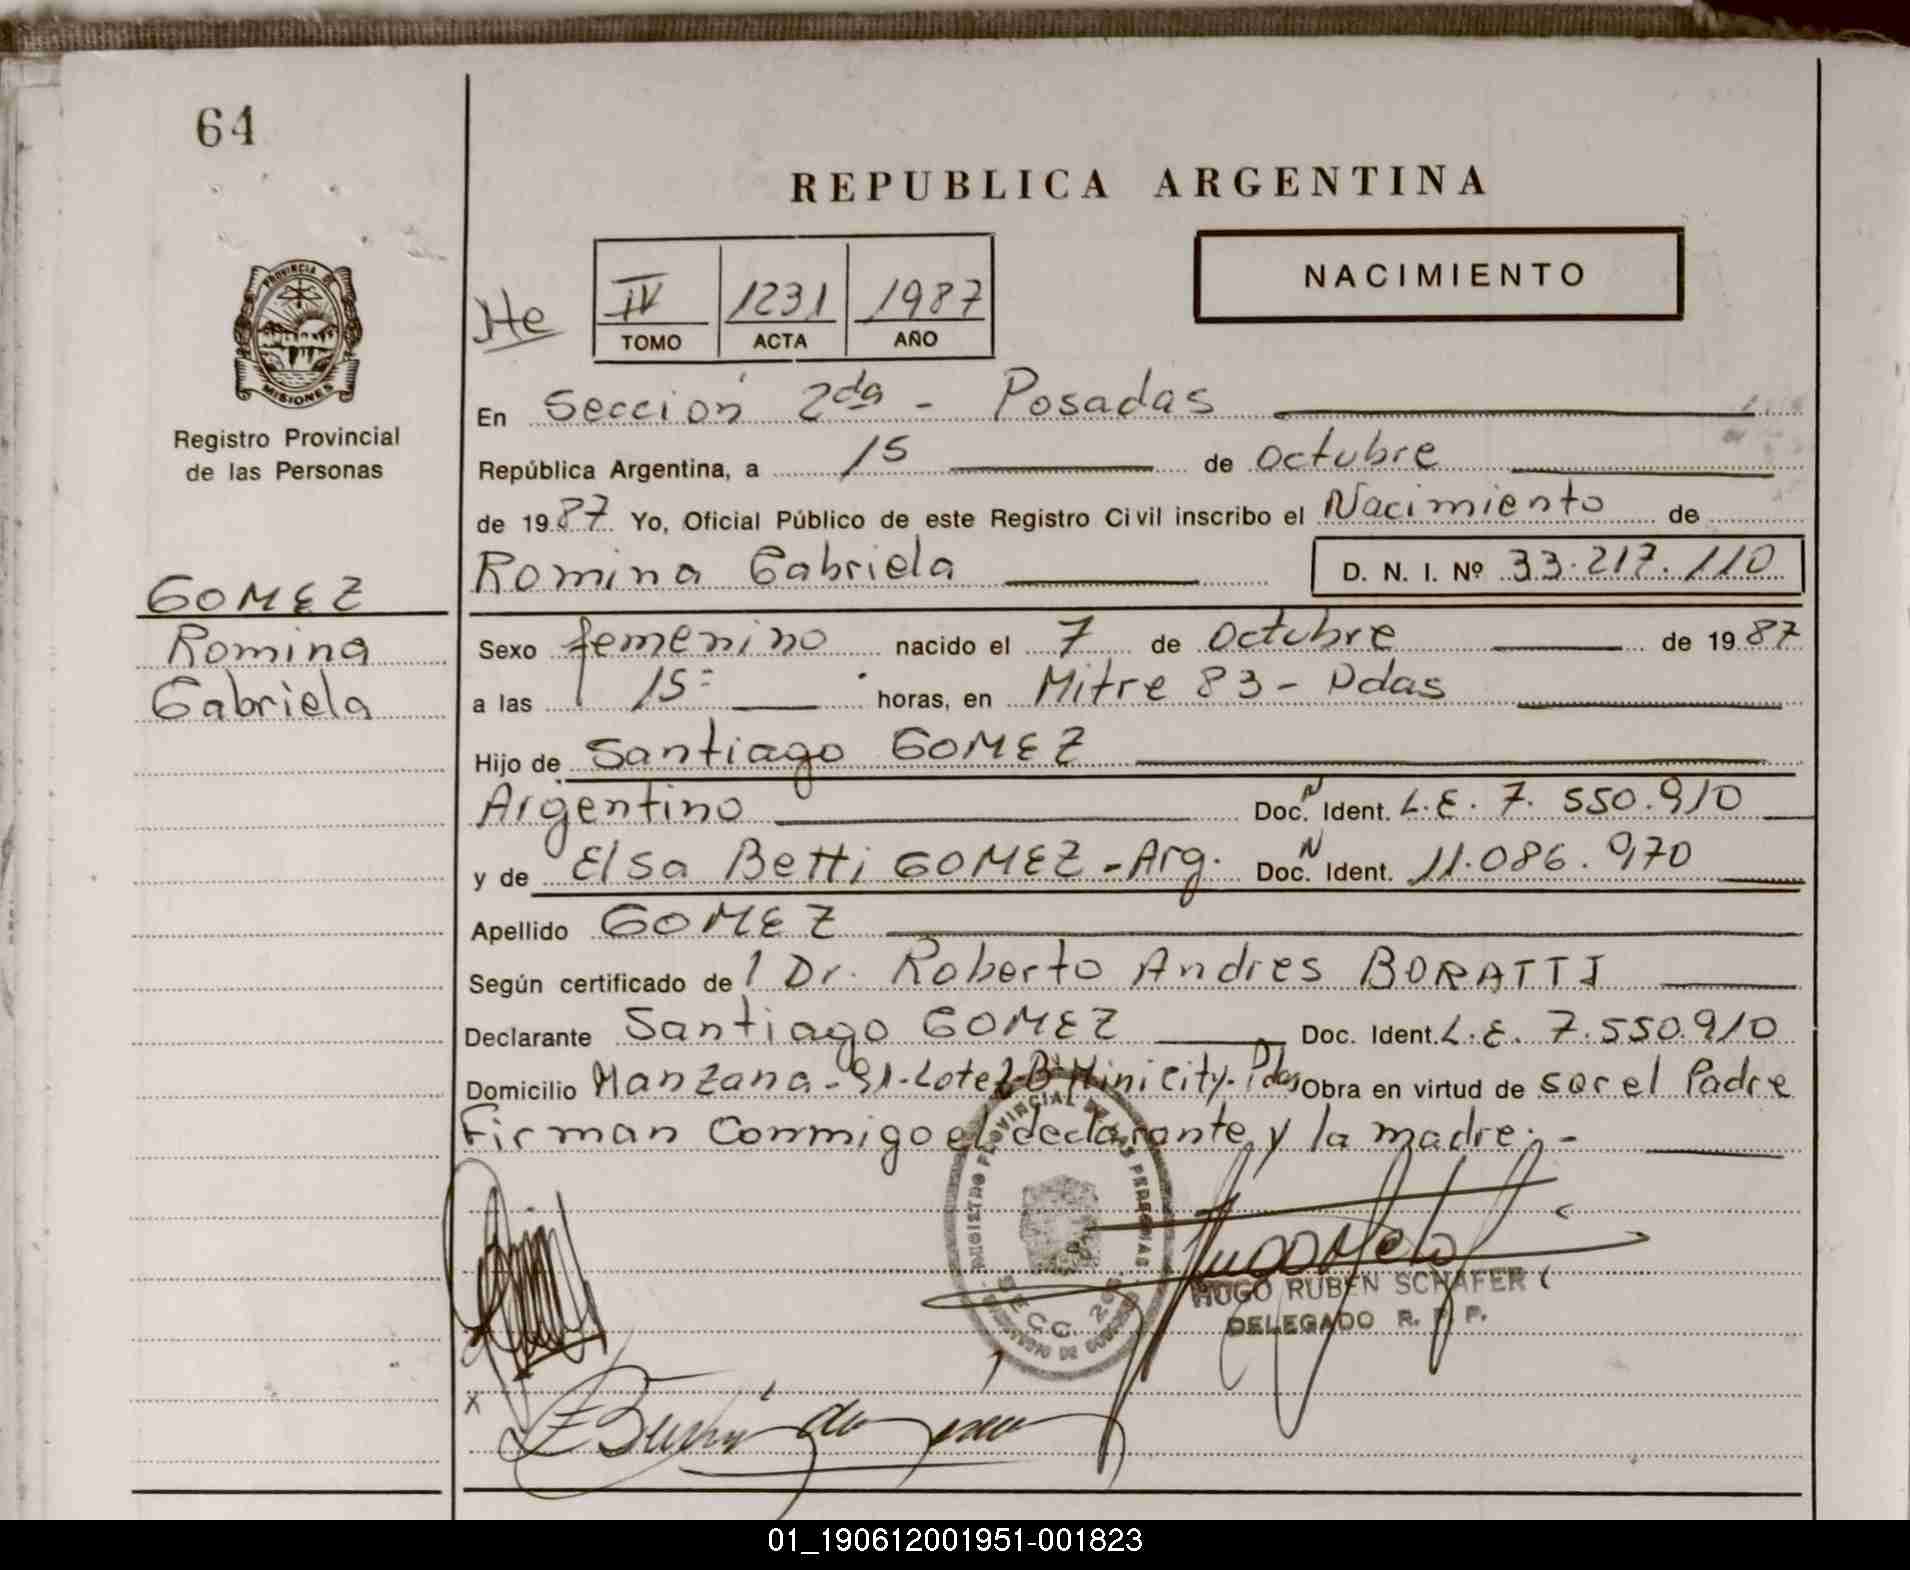 64
REPUBLICA ARGENTINA
NACIMIENTO
He
IV 1231 1987
TOMO ACTA AÑO
PROVINCIA DE
MISIONES
Registro Provincial
de las Personas
En Sección 2da - Posadas
República Argentina, a 15 de Octubre
de 1987 Yo, Oficial Público de este Registro Civil inscribo el Nacimiento de
Romina Gabriela D. N. I. Nº 33.217.110
GOMEZ
Romina
Gabriela
Sexo femenino nacido el 7 de Octubre de 1987
a las 15= horas, en Mitre 83 - Pdas
Hijo de Santiago GOMEZ
Argentino Doc. N Ident. L.E. 7.550.910
y de Elsa Betti GOMEZ - Arg. Doc. N Ident. 11.086.970
Apellido GOMEZ
Según certificado de l Dr. Roberto Andres BORATTI
Declarante Santiago GOMEZ Doc. Ident. L.E. 7.550.910
Domicilio Manzana - 91 - Lote Bº Minicity - Pdas Obra en virtud de ser el Padre
Firman Conmigo el declarante y la madre: -
REGISTRO PROVINCIAL DE LAS PERSONAS
SECC. 2da
HUGO RUBEN SCHAFER
DELEGADO R. P. P.
x
01_190612001951-001823